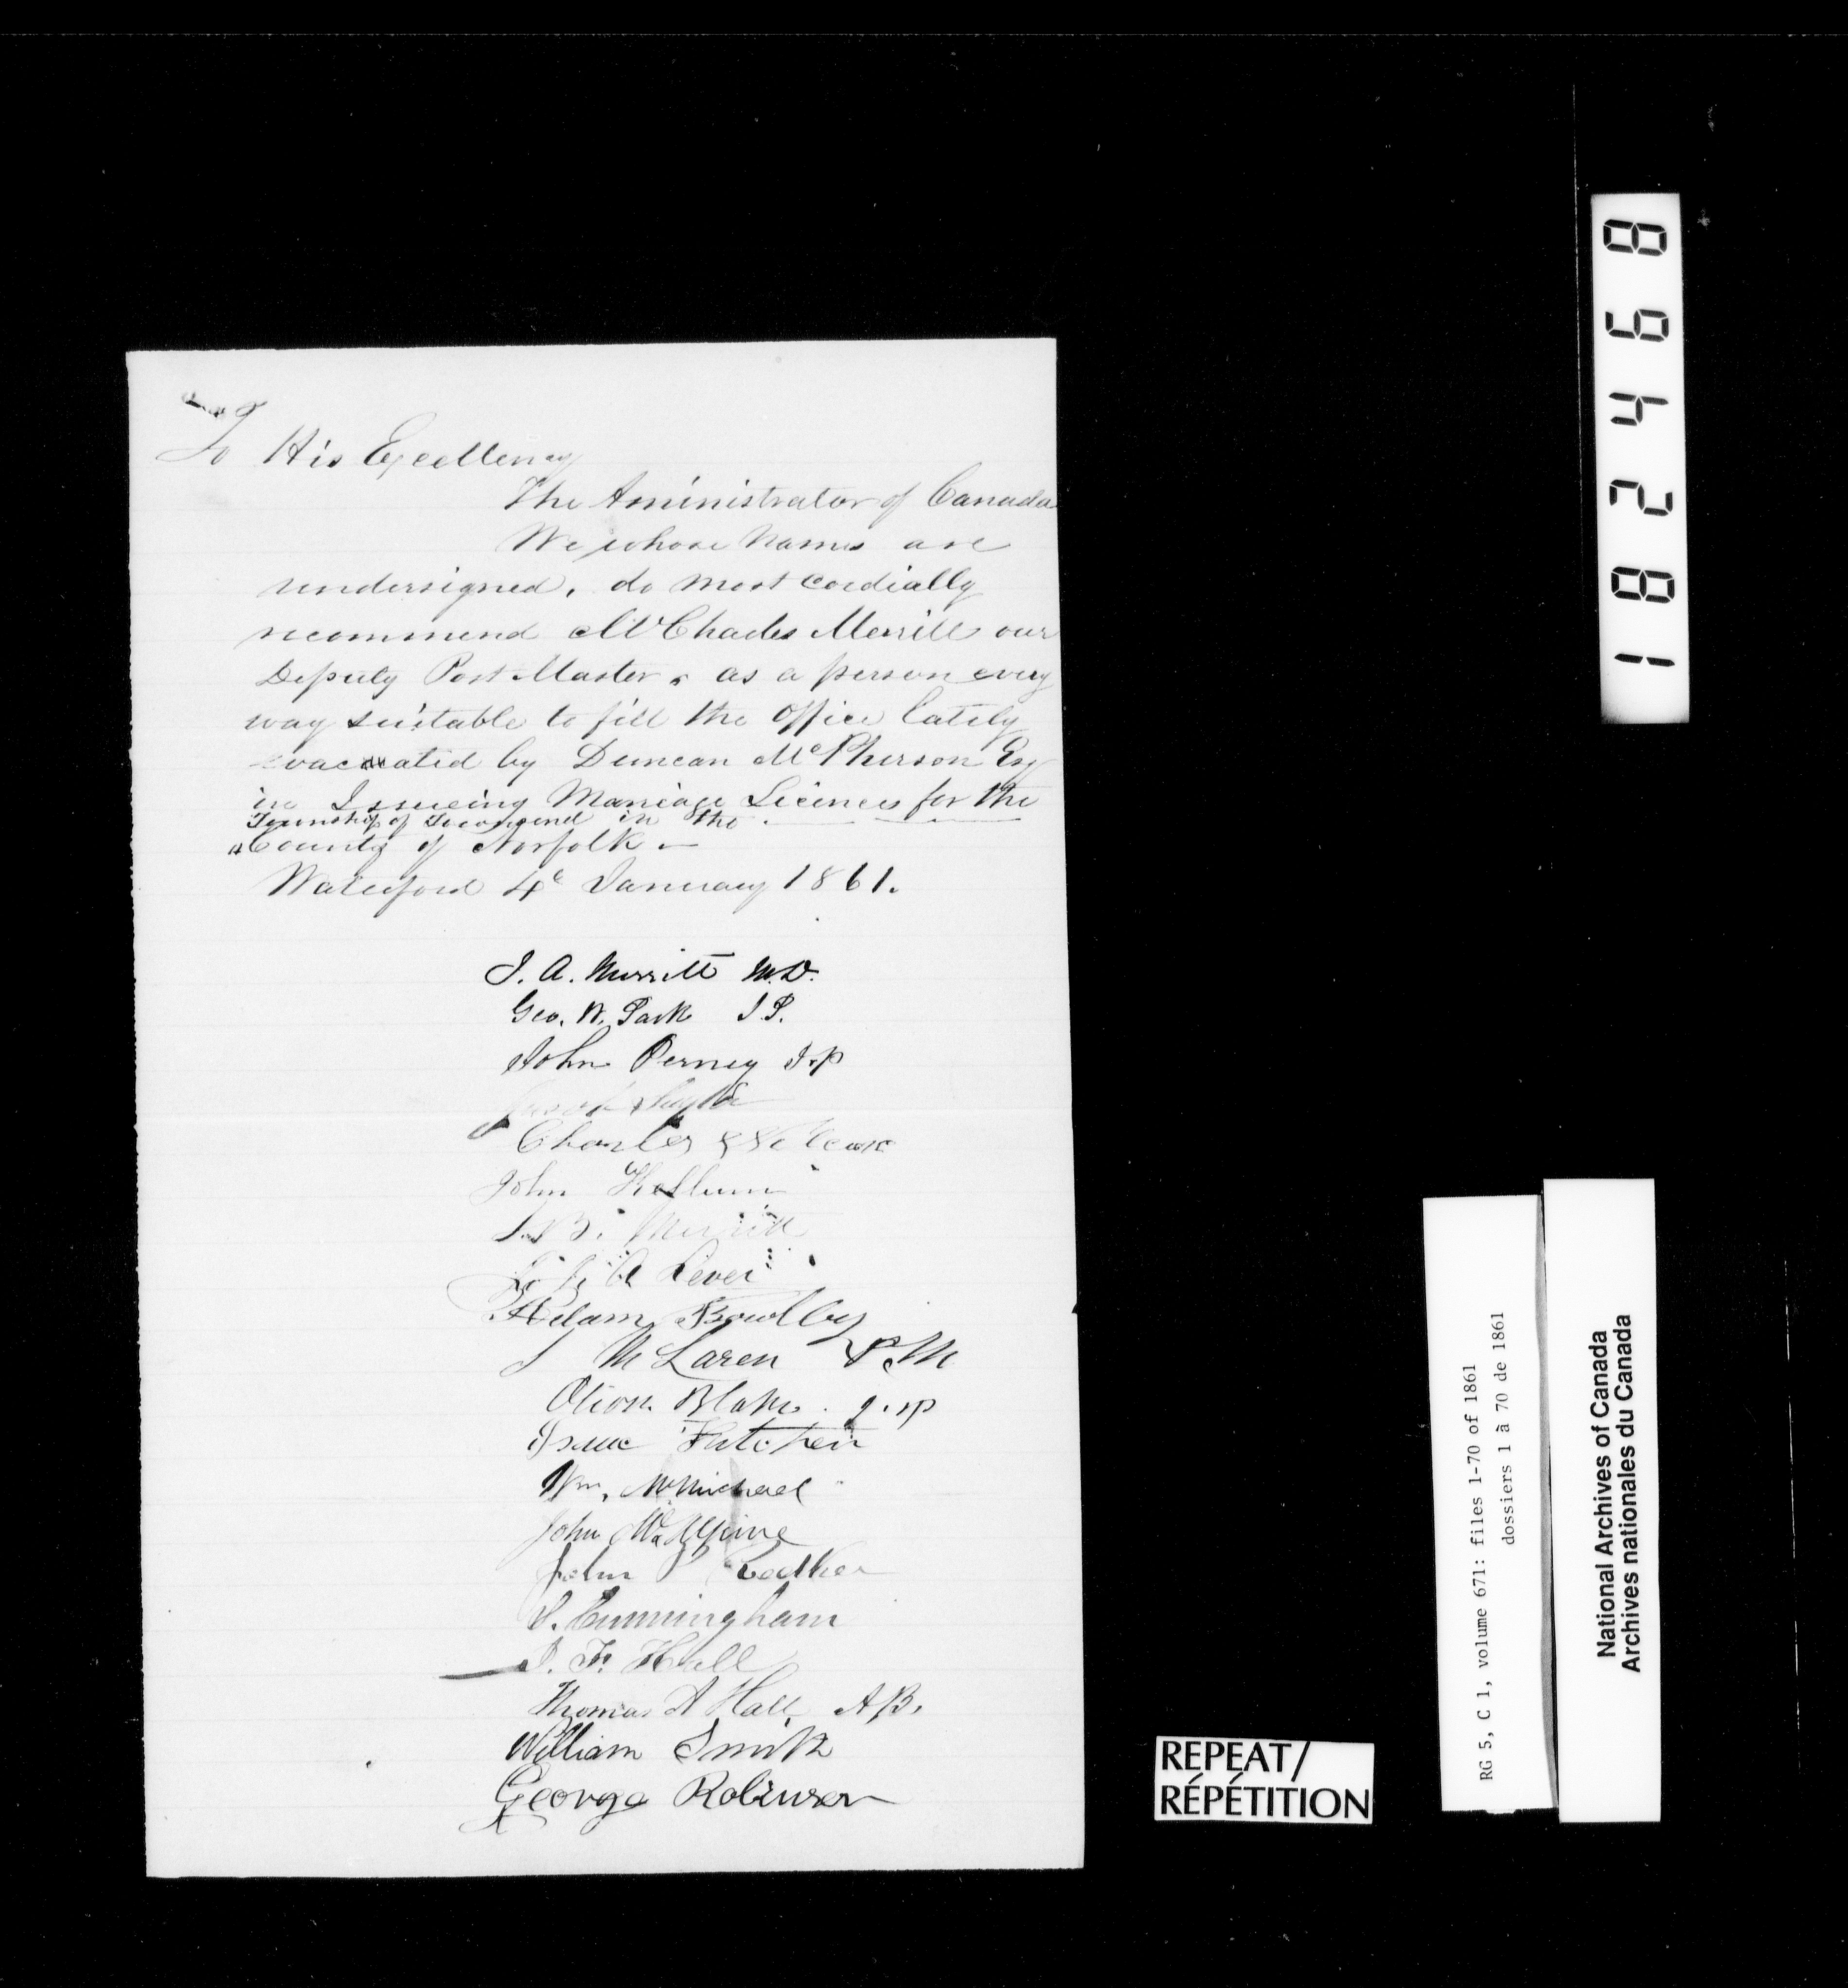 To His Excellency
The Aministrator of Canada
We whose Names are
undersigned, do most cordially
recommend Mr Charles Merrill our
Deputy Post Master, as a person every
way suitable to fill the Office lately
evacuated by Duncan McPherson Esq
in Issueing Marriage Licences for the
Township of Townsend in the
County of Norfolk
Waterford 4th January 1861.
J. A. Merritt M.D.
Geo. W. Park J.P.
John Perney J.P
Charles
John Kellum
B. Merritt
Lever
Adam Bowlby
McLaren P.M
Orion Blake J.P
Isaac Fitchett
Wm. McMichael
John McAlpine
John
Cunningham
J. F. Hall
Thomas A Hall A.B.
William Smith
George Robinson
182468
RG 5, C 1, volume 671: files 1-70 of 1861
dossiers 1 à 70 de 1861
National Archives of Canada
Archives nationales du Canada
REPEAT/
RÉPÉTITION